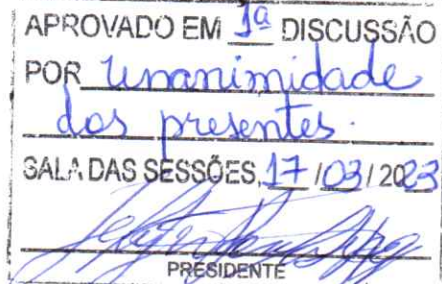 APROVADO EM 1ª DISCUSSÃO
POR Unanimidade
dos presentes.
SALA DAS SESSÕES, 17 / 03 / 2023
PRESIDENTE